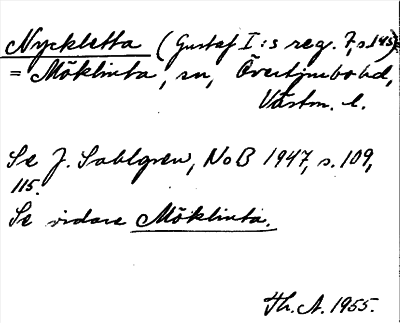 Nyckletta (Gustaf I:s reg. 7, s. 145)
= Möklinta, sn, Övertjurbo hd,
Västm. l.
Se J. Sahlgren, NoB 1947, s. 109,
115.
Se vidare Möklinta.
Th. A. 1955.